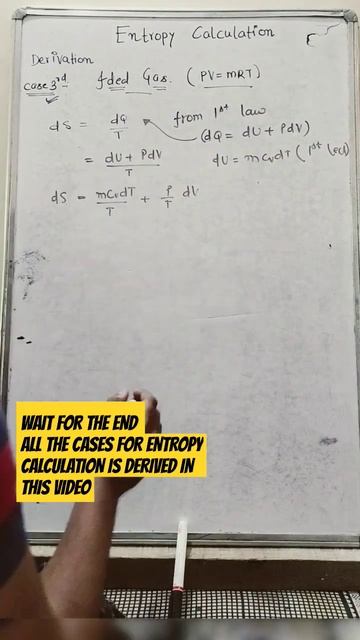 Entropy Calculation
Derivation
Case 3rd Ideal Gas. (PV = mRT)
dS = dQ/T from 1st law
(dQ = dU + PdV)
= dU + PdV/T dU = mCvdT (1st lec)
dS = mCvdT/T + P/T dV
WAIT FOR THE END
ALL THE CASES FOR ENTROPY
CALCULATION IS DERIVED IN
THIS VIDEO